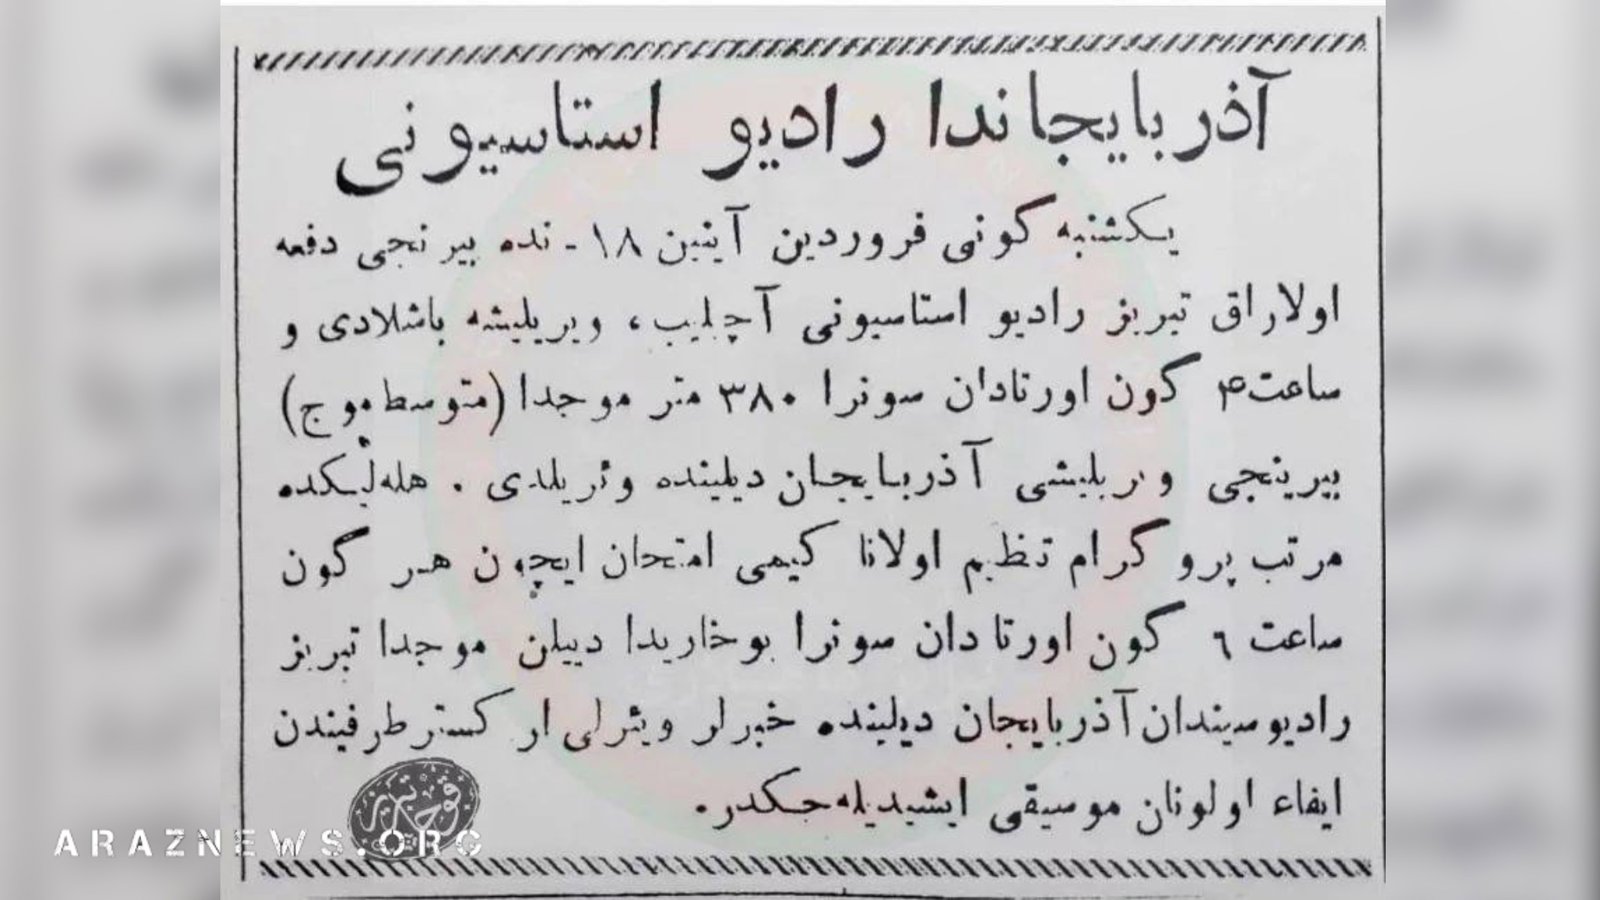 آذربایجاندا رادیو استاسیونی
یکشنبه گونی فروردین آیینن ۱۸ - نده بیرنجی دفعه
اولاراق تبریز رادیو استاسیونی آچیلیب، ویریلیشه باشلادی و
ساعت ۴ گون اورتادان سونرا ۳۸۰ متر موجدا (متوسط موج)
بیرینجی وئریلیشی آذربایجان دیلینده وئریلدی . هله‌لیکده
مرتب پروگرام تنظیم اولانا کیمی امتحان ایچون هر گون
ساعت ٦ گون اورتادان سونرا یوخاریدا دییلن موجدا تبریز
رادیوسیندان آذربایجان دیلینده خبرلر و یئرلی ارکستر طرفیندن
ایفاء اولونان موسیقی ایشیدیله‌جکدر.
ARAZNEWS.ORG